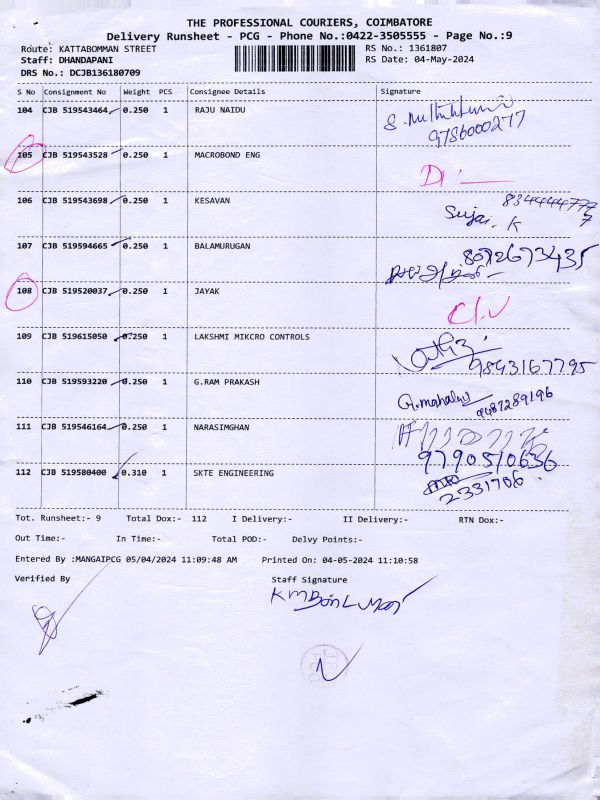 THE PROFESSIONAL COURIERS, COIMBATORE
Delivery Runsheet - PCG - Phone No.:0422-3505555 - Page No.:9
Route: KATTABOMMAN STREET RS No.: 1361807
Staff: DHANDAPANI RS Date: 04-May-2024
DRS No.: DCJB136180709
S No Consignment No Weight PCS Consignee Details Signature
104 CJB 519543464 0.250 1 RAJU NAIDU
9786000277
105 CJB 519543528 0.250 1 MACROBOND ENG
106 CJB 519543698 0.250 1 KESAVAN
Sujai. K
107 CJB 519594665 0.250 1 BALAMURUGAN 8072673435
108 CJB 519520037 0.250 1 JAYAK
109 CJB 519615050 0.250 1 LAKSHMI MIKCRO CONTROLS
9843167795
110 CJB 519593220 0.250 1 G.RAM PRAKASH
9487289196
111 CJB 519546164 0.250 1 NARASIMGHAN
9790510636
112 CJB 519580400 0.310 1 SKTE ENGINEERING
2331706
Tot. Runsheet:- 9 Total Dox:- 112 I Delivery:- II Delivery:- RTN Dox:-
Out Time:- In Time:- Total POD:- Delvy Points:-
Entered By :MANGAIPCG 05/04/2024 11:09:48 AM Printed On: 04-05-2024 11:10:58
Verified By Staff Signature